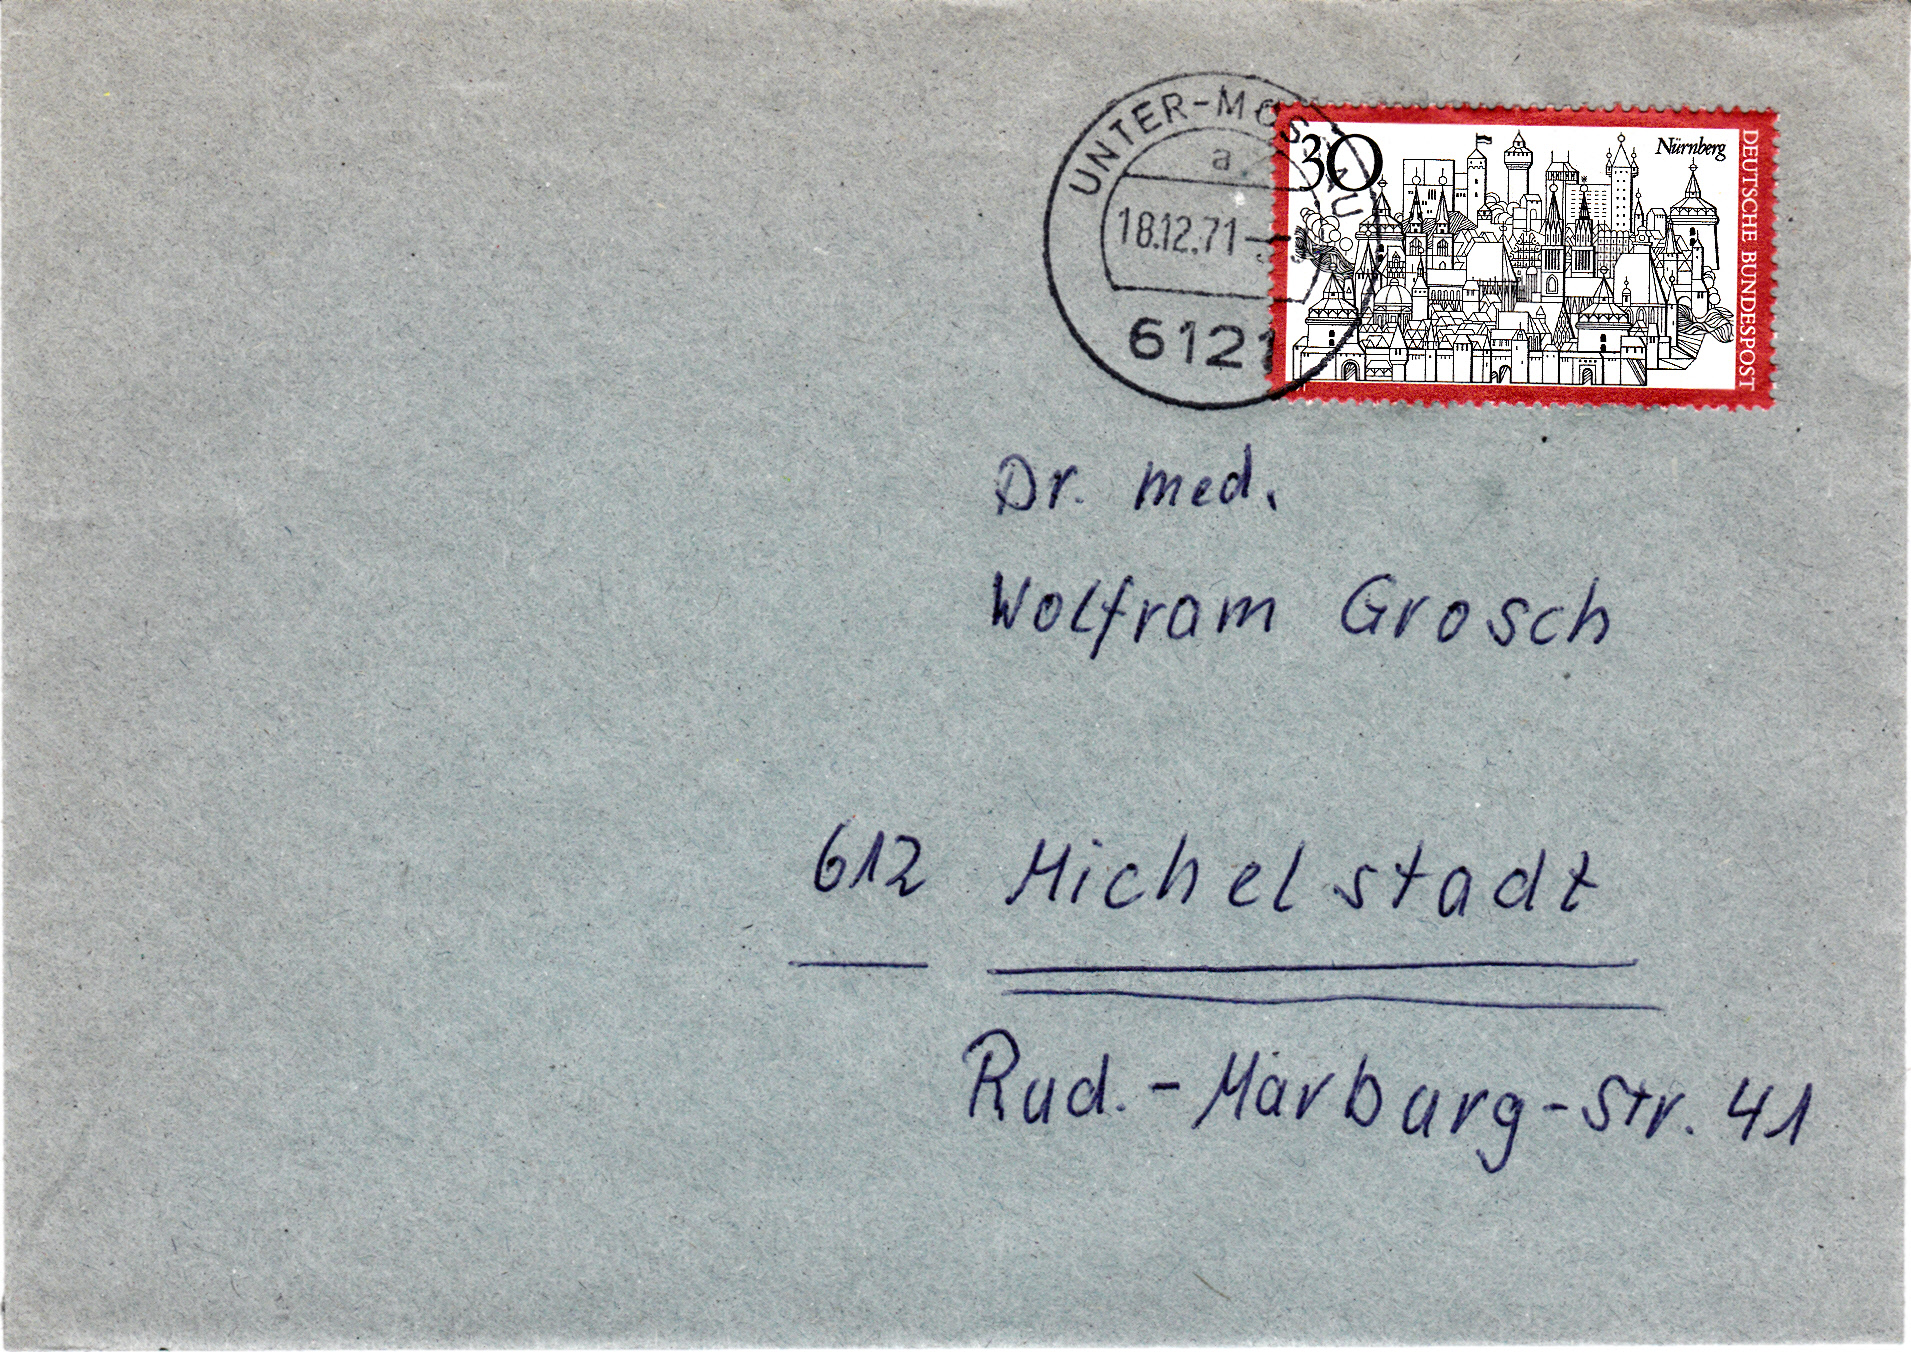 UNTER-MOSSAU
a
18.12.71
6121
30
Nürnberg
DEUTSCHE BUNDESPOST
Dr. med.
Wolfram Grosch
612 Michelstadt
Rud.-Marburg-Str. 41